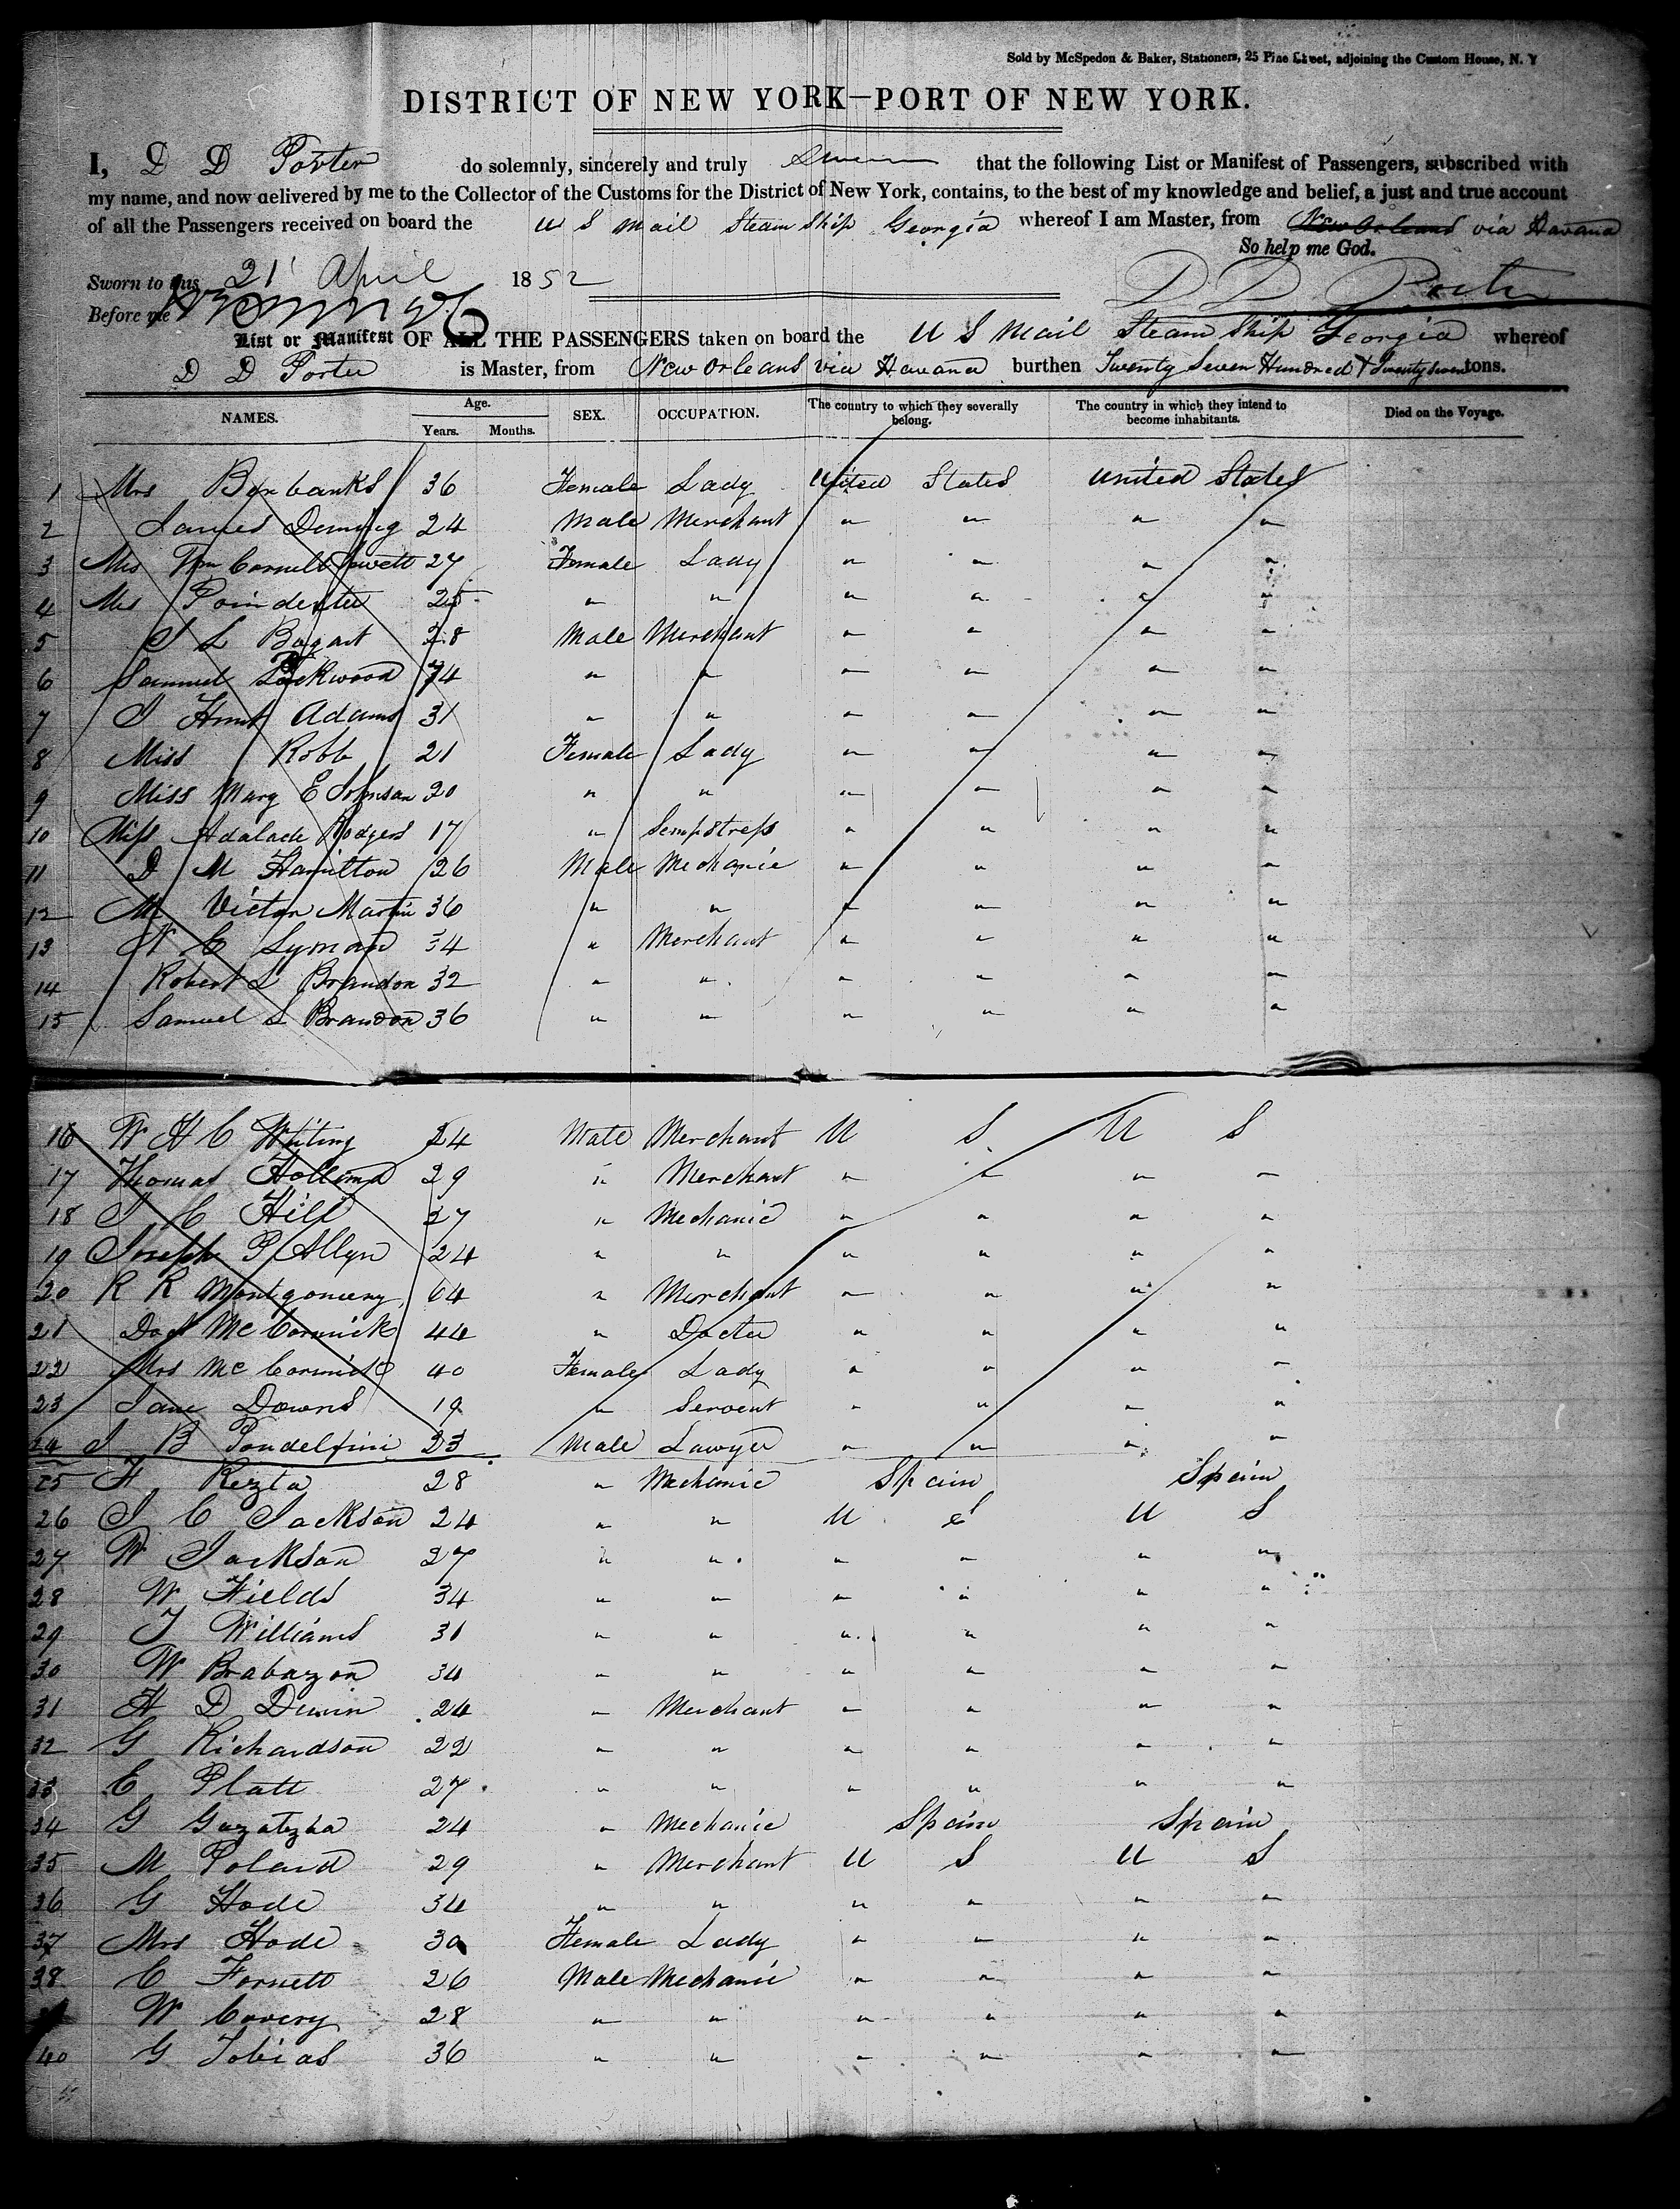 Sold by McSpedon & Baker, Stationers, 25 Pine Street, adjoining the Custom House, N. Y
DISTRICT OF NEW YORK—PORT OF NEW YORK.
I, D D Porter do solemnly, sincerely and truly that the following List or Manifest of Passengers, subscribed with
my name, and now delivered by me to the Collector of the Customs for the District of New York, contains, to the best of my knowledge and belief, a just and true account
of all the Passengers received on board the U S Mail Steam Ship Georgia whereof I am Master, from New Orleans via Havana
So help me God.
Sworn to this 21 April 1852
D D Porter
Before me
List or Manifest OF ALL THE PASSENGERS taken on board the U S Mail Steam Ship Georgia whereof
D D Porter is Master, from New Orleans via Havana burthen Twenty Seven Hundred & Twenty Seven tons.
NAMES. Age. Years. Months. SEX. OCCUPATION. The country to which they severally belong. The country in which they intend to become inhabitants. Died on the Voyage.
1 Mrs 36 Female Lady United States United States
2 James Deming 24 Male Merchant " " " "
3 Mrs Wm Cornell Jewett 27 Female Lady " " " "
4 Mrs Poindexter 25 " " " " " "
5 J L Bogart 28 Male Merchant " " " "
6 Samuel 74 " " " " " "
7 J Hunt Adams 31 " " " " " "
8 Miss Robb 21 Female Lady " " " "
9 Miss Mary E Johnson 20 " " " " " "
10 Miss Adalade Rodgers 17 " Sempstress " " " "
11 D M Hamilton 26 Male Mechanic " " " "
12 M Victor Martin 36 " " " " " "
13 N C Lyman 34 " Merchant " " " "
14 Robert L Brandon 32 " " " " " "
15 Samuel S Brandon 36 " " " " " "
16 W H C Whiting 24 Male Merchant U S U S
17 Thomas Hollima 29 " Merchant " " " "
18 J C Hill 27 " Mechanic " " " "
19 Joseph P Allyn 24 " " " " " "
20 R R Montgomery 64 " Merchant " " " "
21 Doct McCormick 44 " Docter " " " "
22 Mrs McCormick 40 Female Lady " " " "
23 Jane Downs 19 " Servent " " " "
24 J B Pondelfini 23 Male Lawyer " " " "
25 H Rezta 28 " Mechanic Spain Spain
26 J C Jackson 24 " " U S U S
27 W Jackson 27 " " " " " "
28 W Fields 34 " " " " " "
29 J Williams 31 " " " " " "
30 W Brabazon 34 " " " " " "
31 H D 24 " Merchant " " " "
32 G Richardson 22 " " " " " "
33 E Platt 27 " " " " " "
34 G Gazatzha 24 " Mechanic Spain Spain
35 M Poland 29 " Merchant U S U S
36 G Hode 34 " " " " " "
37 Mrs Hode 30 Female Lady " " " "
38 C Fornett 26 Male Mechanic " " " "
W Covery 28 " " " " " "
40 G Tobias 36 " " " " " "